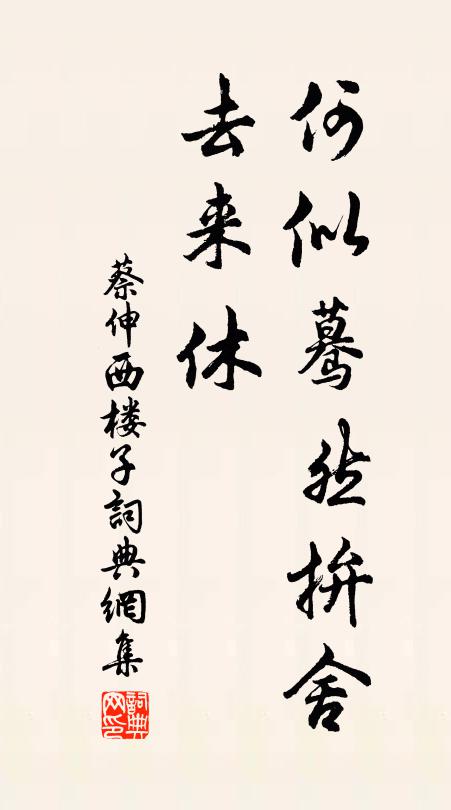 何似蓦然拚舍
去来休
蔡伸西楼子詞典網集
詞典网印